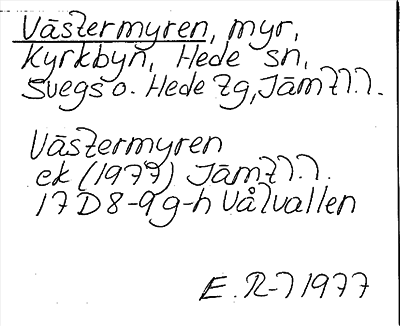 Västermyren, myr,
Kyrkbyn, Hede sn,
Svegs o. Hede tg, Jämtl.l.
Västermyren
ek (1977) Jämtl.l.
17 D 8-9 g-h Vålvallen
E. R-l 1977